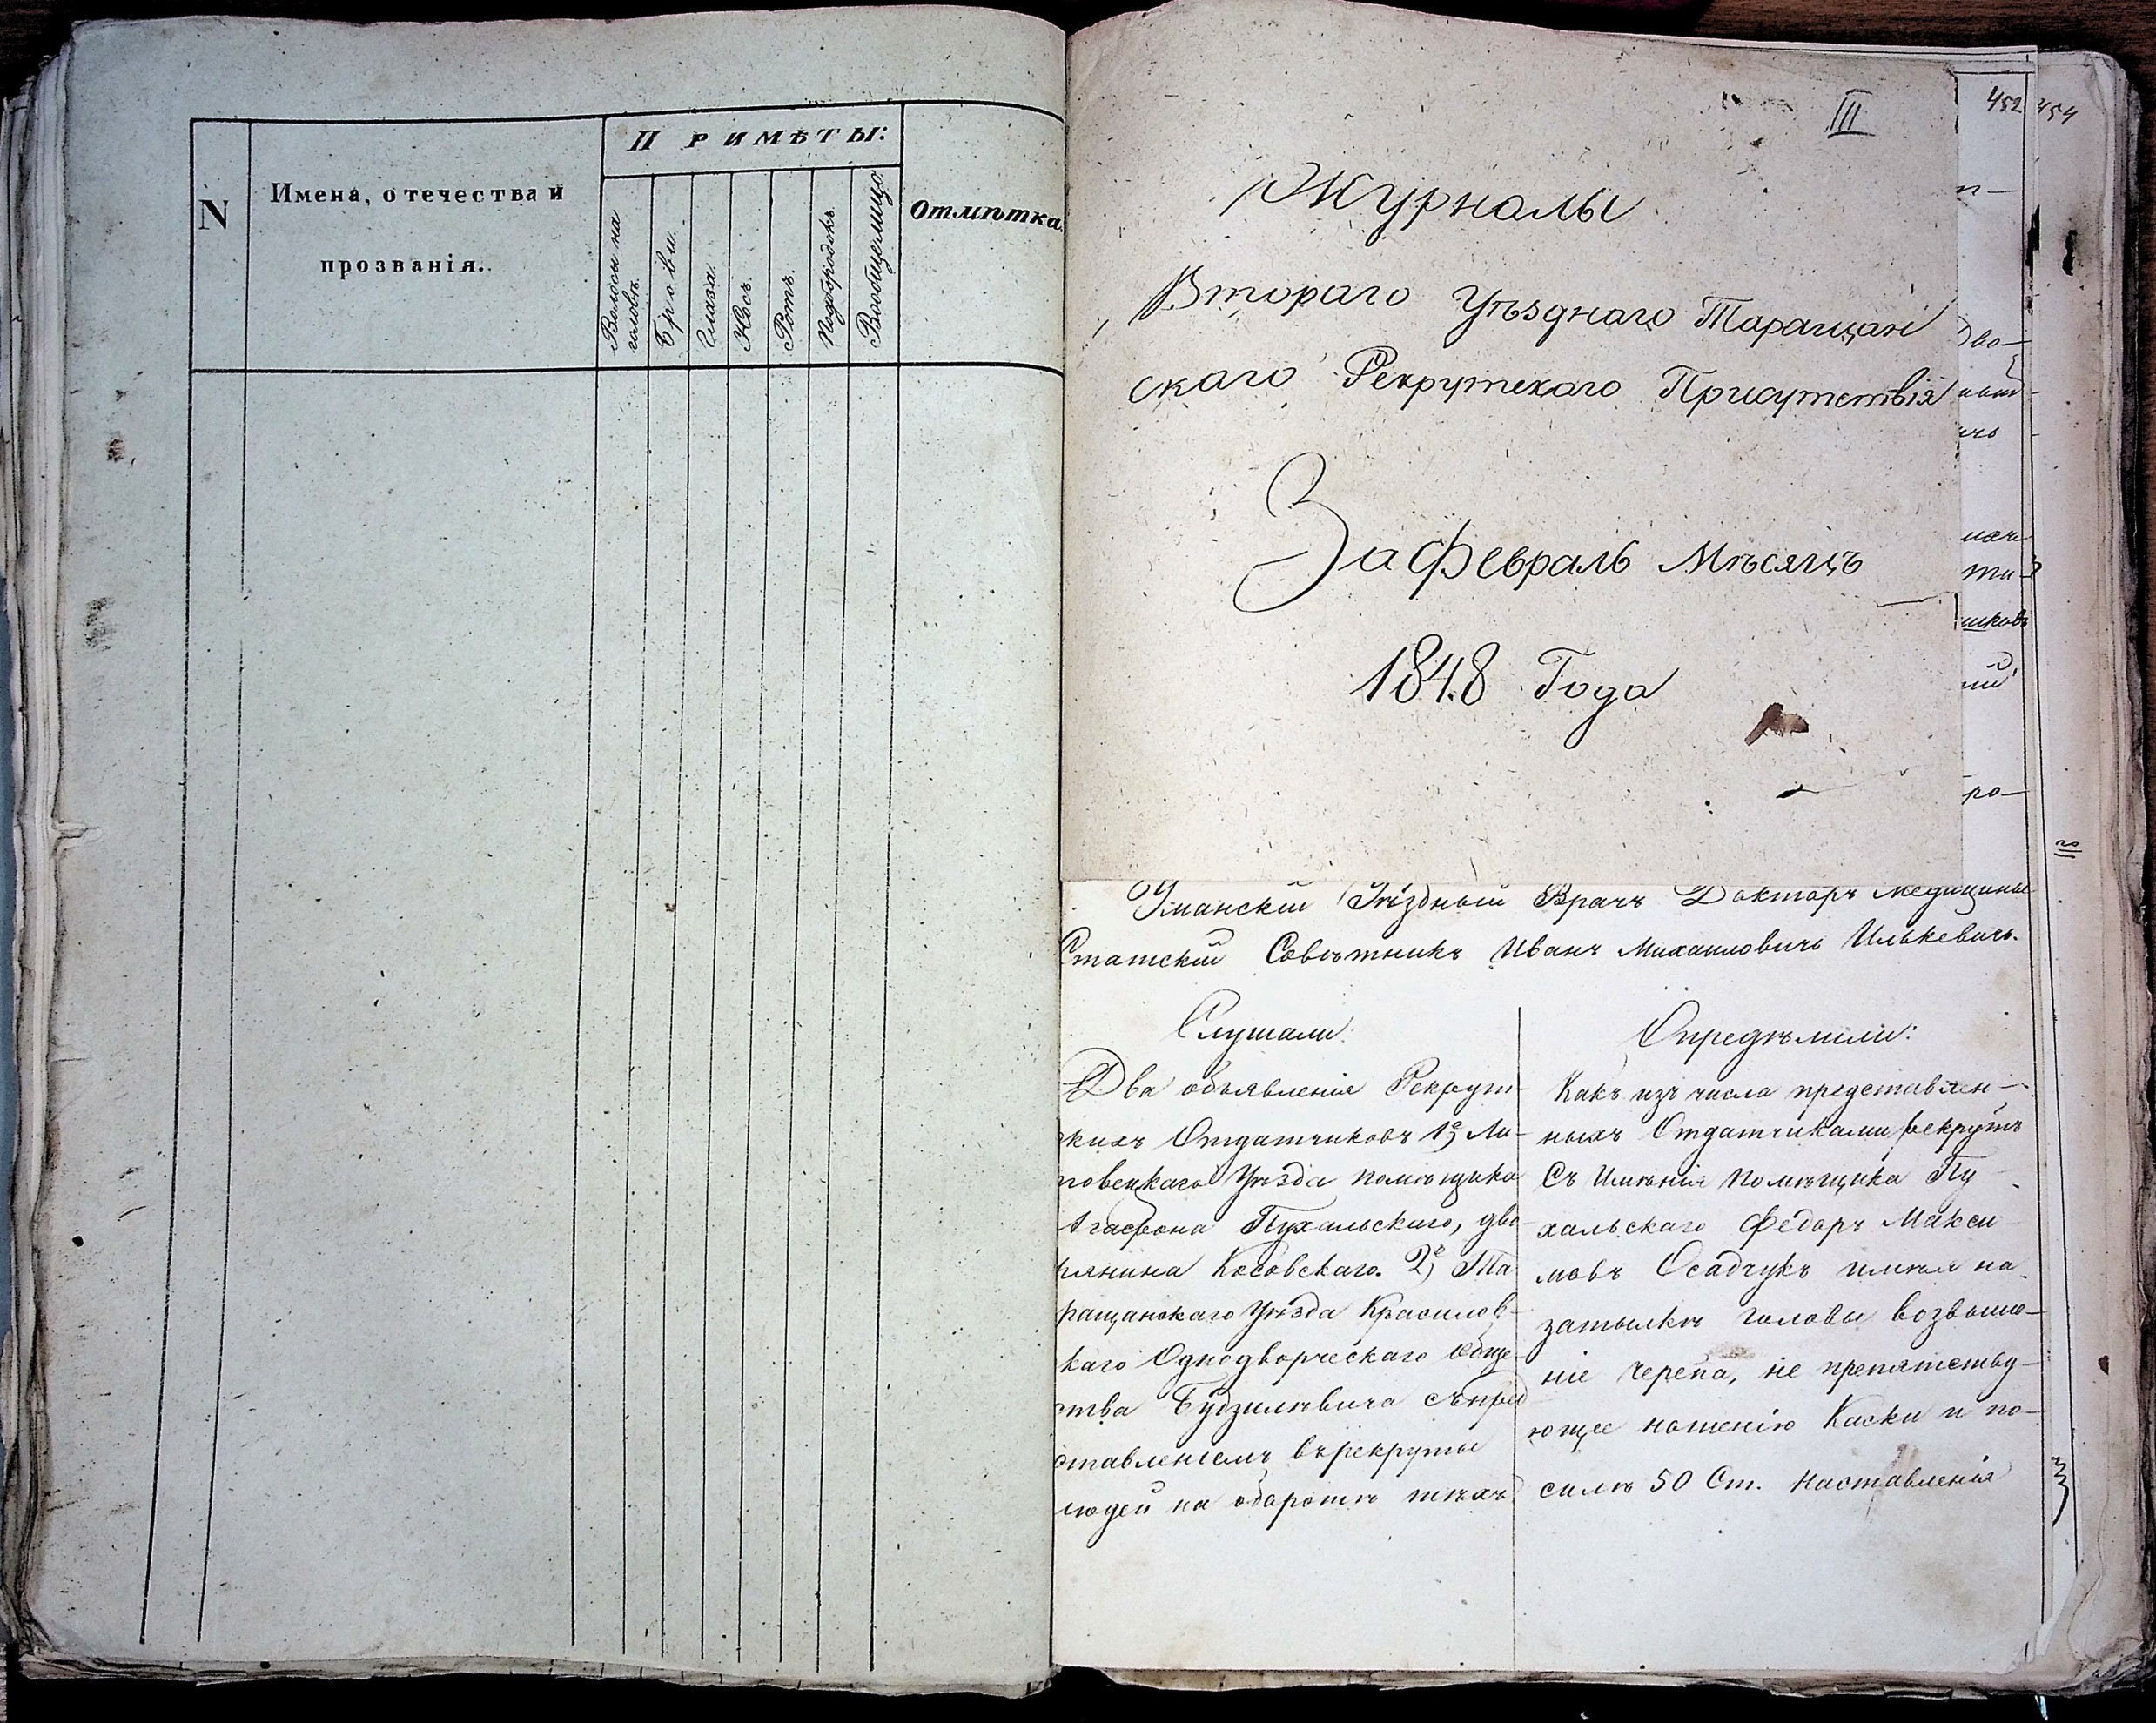 N
Имена, отечества и
прозванія.
Примѣты:
Волосы на
головѣ.
Брови.
Глаза.
Носъ.
Ротъ.
Подбородокъ.
Вообще лицо.
Отмѣтка.
III
452
454
Журналы
Втораго Уѣзднаго Таращан
скаго Рекрутскаго Присутствія
За Февраль Мѣсяцъ
1848 Года
Уманскій Уѣздный Врачъ Докторъ Медицины
Статскій Совѣтникъ Иванъ Михаиловичь Илькевичь.
Слушали:
Два объявленія Рекрут-
скихъ Отдатчиковъ 1е, Ли-
повецкаго Уѣзда помѣщика
Агафона Пухальскаго, дво-
рянина Косовскаго. 2е, Та
ращанскаго Уѣзда Красилов-
каго Однодворческаго Обще-
ства Будзилѣвича съ пред
ставленіемъ въ рекруты
людей на оборотѣ тѣхъ
Опредѣлили:
Какъ изъ числа представлен-
ныхъ Отдатчиками рекрутъ
Съ Имѣнія помѣщика Пу
хальскаго Федоръ Макси
мовъ Осадчукъ имѣя на
затылкѣ головы возвыше-
ніе черепа, не препятству-
ющее ношенію Каски и по-
силѣ 50 Ст. Наставленія